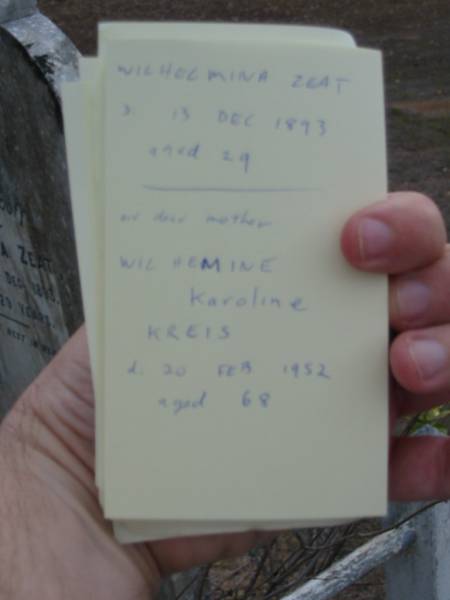 WILHELMINA ZEAT
d. 13 DEC 1893
aged 29
our dear mother
WILHEMINE
Karoline
KREIS
d. 20 FEB 1952
aged 68
ZEAT
DEC 1893
29 YEARS